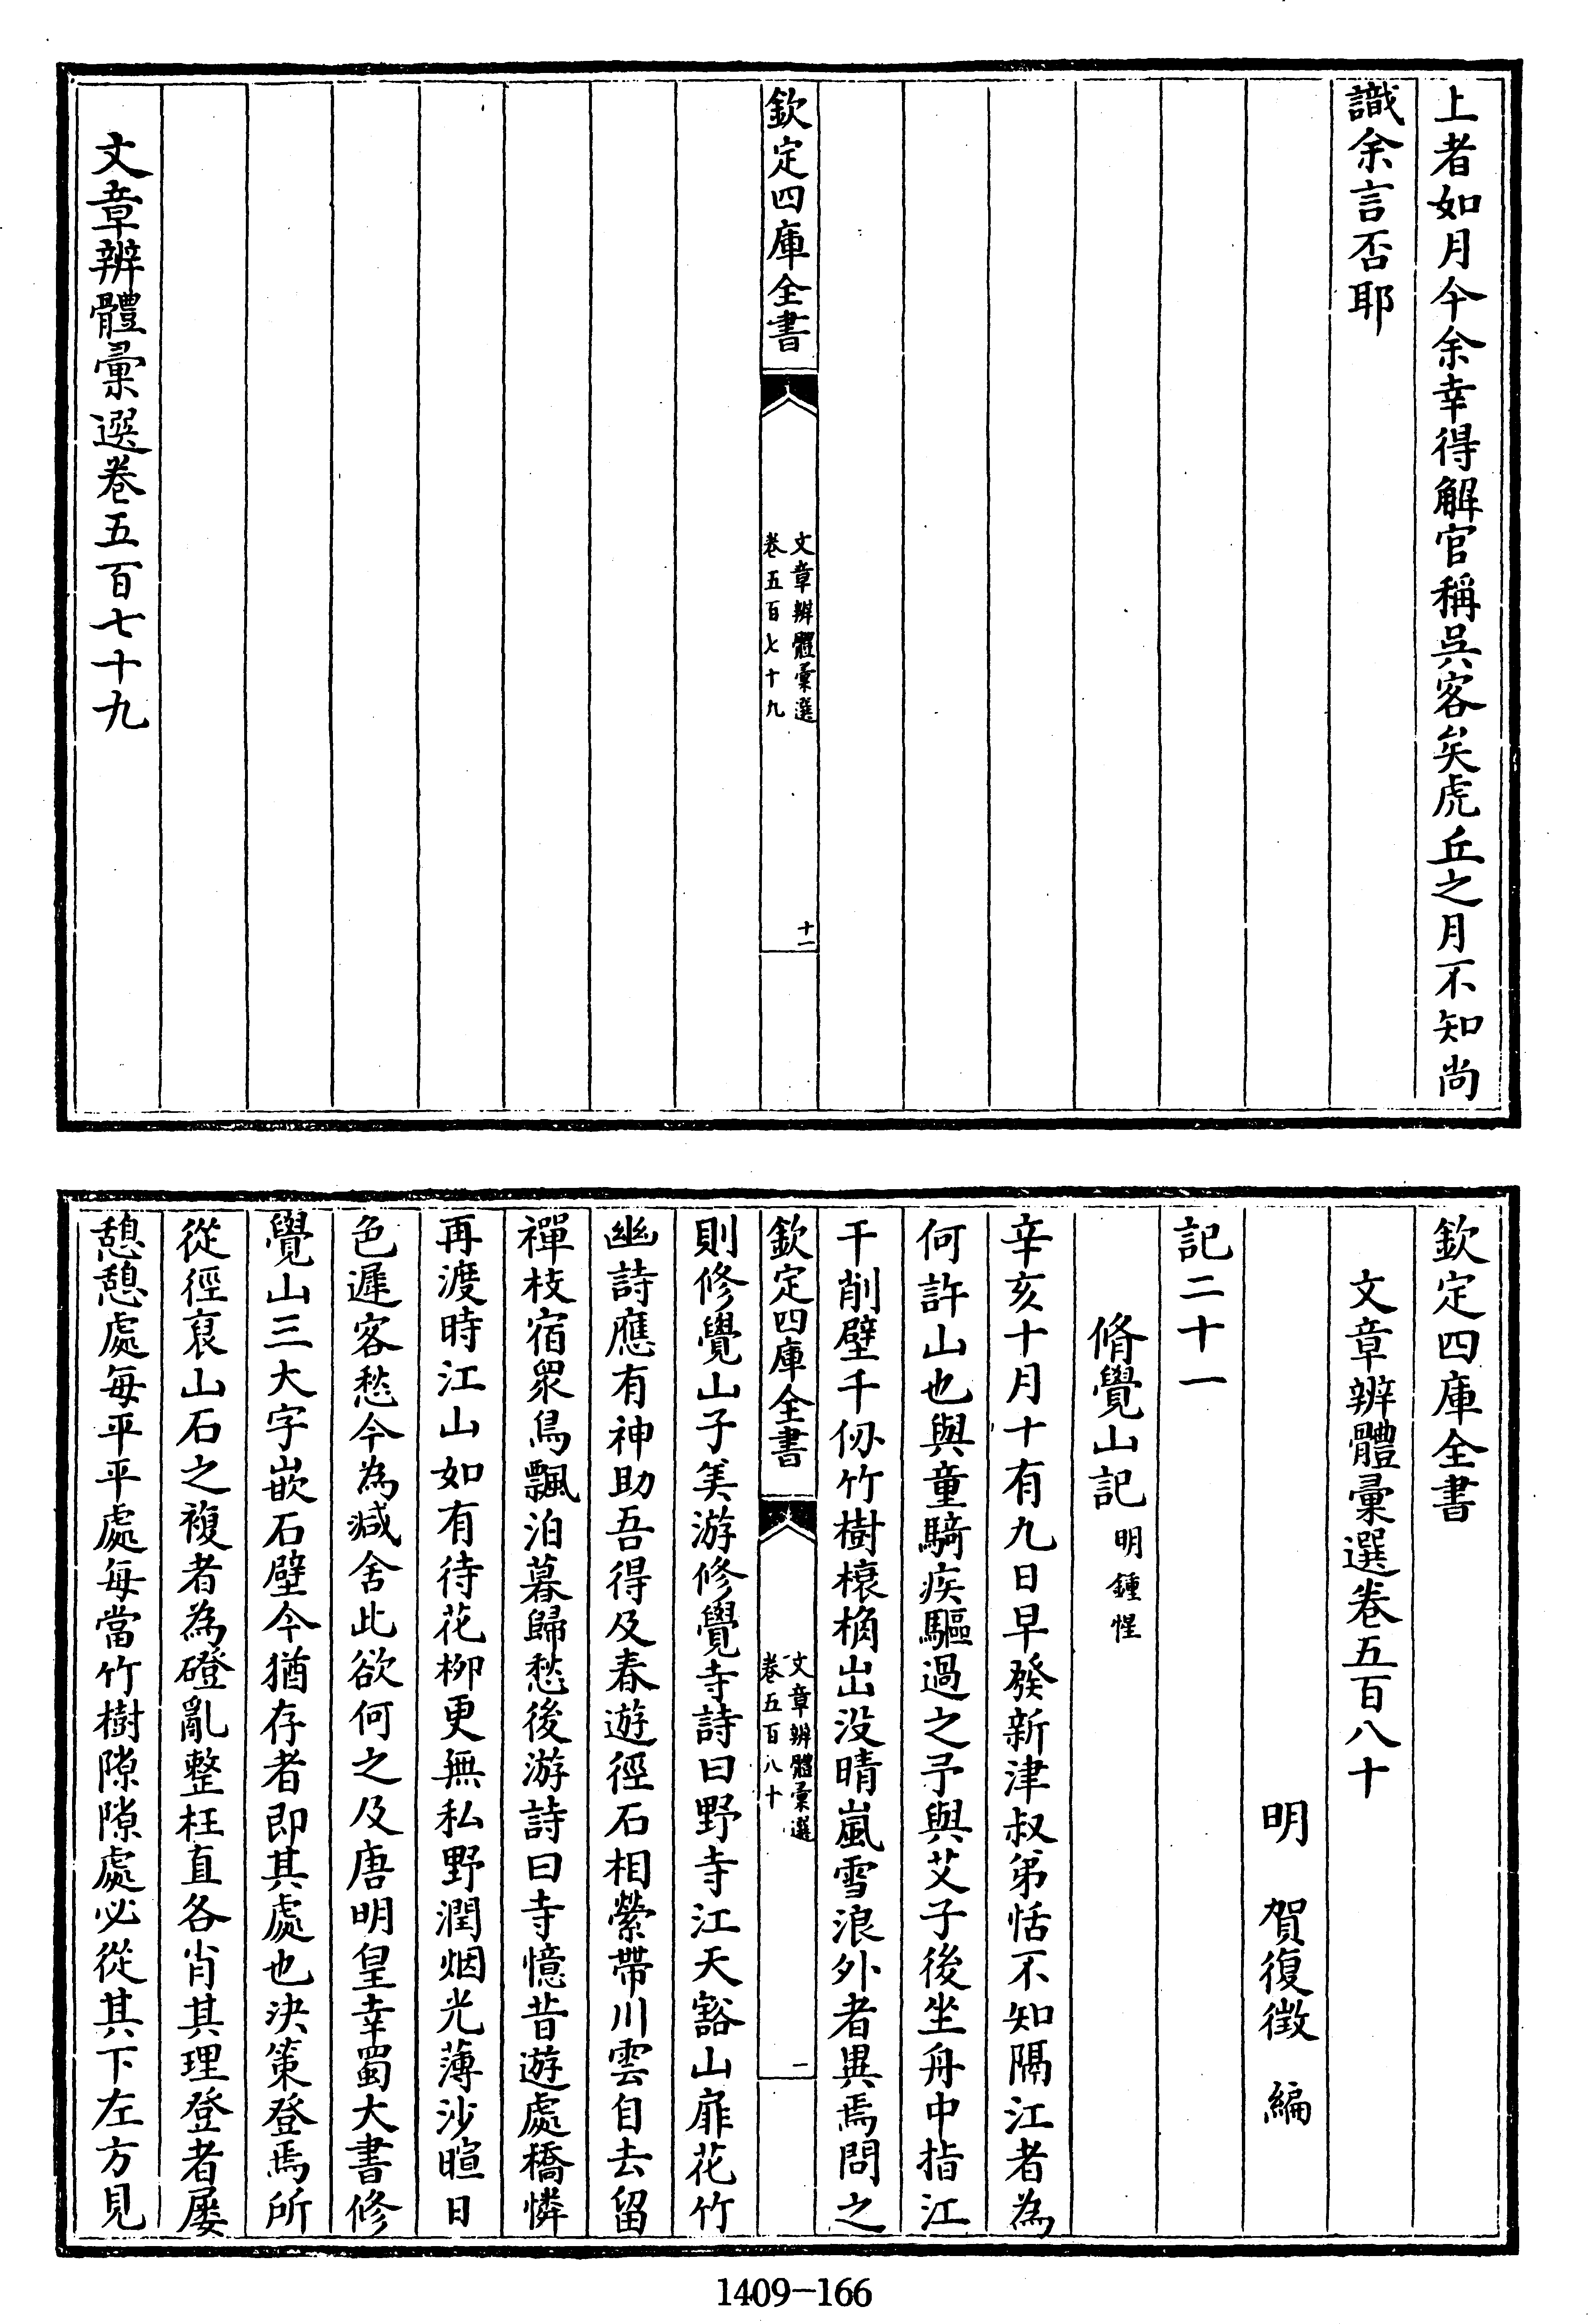 上者如月今余幸得解官稱吳客矣虎丘之月不知尚
識余言否耶
欽定四庫全書
文章辨體彙選
卷五百七十九
十一
文章辨體彙選卷五百七十九
欽定四庫全書
文章辨體彙選卷五百八十
明 賀復徴 編
記二十一
脩覺山記 明鍾惺
辛亥十月十有九日早發新津叔弟恬不知隔江者為
何許山也與童騎疾驅過之予與艾子後坐舟中指江
干削壁千仭竹樹榱桷出没晴嵐雪浪外者異焉問之
欽定四庫全書
文章辨體彙選
卷五百八十
一
則修覺山子美游修覺寺詩曰野寺江天豁山扉花竹
幽詩應有神助吾得及春遊徑石相縈帶川雲自去留
禪枝宿衆鳥飄泊暮歸愁後游詩曰寺憶昔遊處橋憐
再渡時江山如有待花柳更無私野潤烟光薄沙暄日
色遲客愁今為減舍此欲何之及唐明皇幸蜀大書修
覺山三大字嵌石壁今猶存者即其處也决策登焉所
從徑裒山石之複者為磴亂整枉直各肖其理登者屢
憩憩處每平平處每當竹樹隙隙處必從其下左方見
1409-166